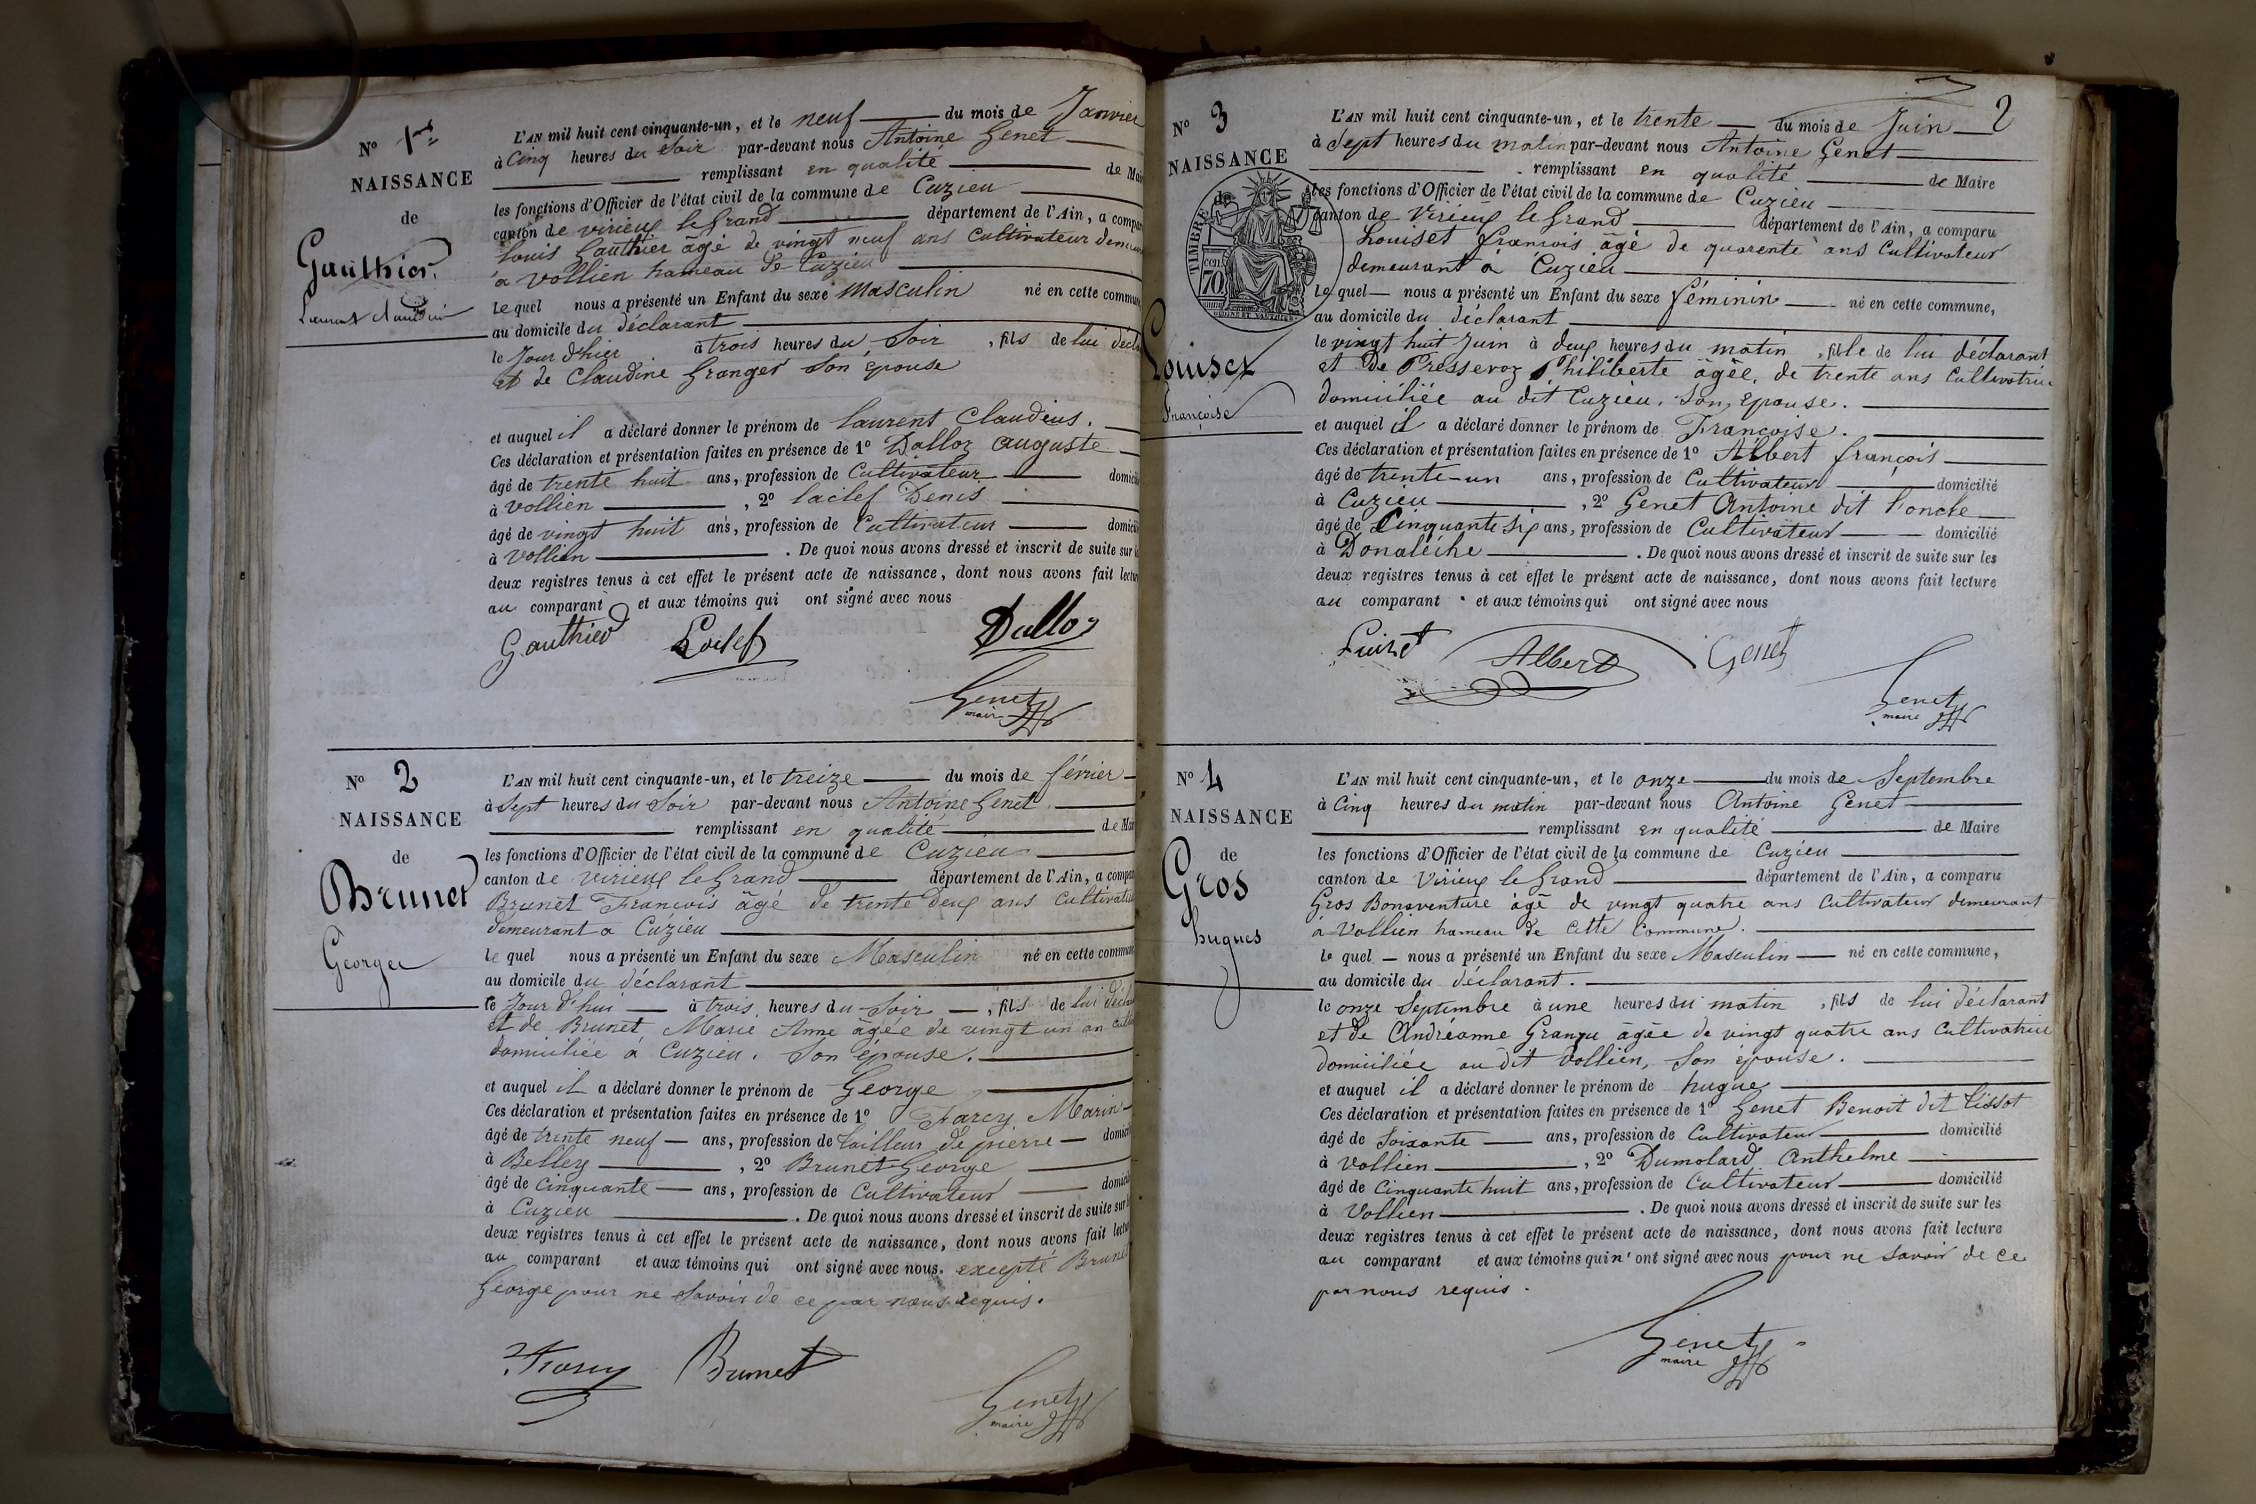 Nº 1er
NAISSANCE
de
Gauthier
Laurent Claudius
L'AN mil huit cent cinquante-un, et le neuf du mois de Janvier
à Cinq heures du soir par-devant nous Antoine Genet
remplissant en qualité de Mai
les fonctions d'Officier de l'état civil de la commune de Cuzieu
canton de virieux le Grand département de l'Ain, a compa
Louis Gauthier âgé de vingt neuf ans Cultivateur demeu
à Vollien hameau de Cuzieu
le quel nous a présenté un Enfant du sexe Masculin né en cette commune
au domicile du déclarant
le Jour d'hier à trois heures du Soir, fils de lui décla
et de Claudine Granger Son épouse
et auquel il a déclaré donner le prénom de laurent Claudius.
Ces déclaration et présentation faites en présence de 1º Dalloz auguste
âgé de trente huit ans, profession de Cultivateur domici
à Vollien, 2º laclef Denis
âgé de vingt huit ans, profession de Cultivateur domici
à Vollien. De quoi nous avons dressé et inscrit de suite sur l
deux registres tenus à cet effet le présent acte de naissance, dont nous avons fait lectur
au comparant et aux témoins qui ont signé avec nous
Gauthier Laclef Dalloz
Genet
maire
Nº 2
NAISSANCE
de
Brunet
George
L'AN mil huit cent cinquante-un, et le treize du mois de février
à Sept heures du Soir par-devant nous Antoine Genet
remplissant en qualité de Mai
les fonctions d'Officier de l'état civil de la commune de Cuzieu
canton de virieux le Grand département de l'Ain, a compa
Brunet François âgé de trente Deux ans Cultivate
demeurant à Cuzieu
le quel nous a présenté un Enfant du sexe Masculin né en cette commune
au domicile du déclarant
le Jour d'hui à trois heures du Soir, fils de lui décla
et de Brunet Marie Anne âgée de vingt un an cult
domiciliée à Cuzieu. Son épouse.
et auquel il a déclaré donner le prénom de George
Ces déclaration et présentation faites en présence de 1º Farcy Marin
âgé de trente neuf ans, profession de tailleur de pierre domici
à Belley, 2º Brunet George
âgé de cinquante ans, profession de Cultivateur domici
à Cuzieu. De quoi nous avons dressé et inscrit de suite sur l
deux registres tenus à cet effet le présent acte de naissance, dont nous avons fait lectu
au comparant et aux témoins qui ont signé avec nous. excepté Brunet
George pour ne Savoir de ce par nous requis.
Farcy Brunet
Genet
maire
2
Nº 3
NAISSANCE
de
TIMBRE
cen 70
Louiset
Françoise
L'AN mil huit cent cinquante-un, et le trente du mois de Juin
à Sept heures du matin par-devant nous Antoine Genet
remplissant en qualité de Maire
les fonctions d'Officier de l'état civil de la commune de Cuzieu
canton de Virieux le Grand département de l'Ain, a comparu
Louiset françois âgé de quarente ans Cultivateur
demeurant à Cuzieu
le quel nous a présenté un Enfant du sexe féminin né en cette commune,
au domicile du déclarant
le vingt huit Juin à deux heures du matin, fille de lui déclarant
et De Pressevoz Philiberte âgée, de trente ans Cultivatrice
domiciliée au dit Cuzieu. Son, épouse.
et auquel il a déclaré donner le prénom de Françoise.
Ces déclaration et présentation faites en présence de 1º Albert françois
âgé de trente-un ans, profession de Cultivateur domicilié
à Cuzieu, 2º Genet Antoine dit l'oncle
âgé de Cinquante Six ans, profession de Cultivateur domicilié
à Donalèche. De quoi nous avons dressé et inscrit de suite sur les
deux registres tenus à cet effet le présent acte de naissance, dont nous avons fait lecture
au comparant et aux témoins qui ont signé avec nous
Luiset Albert Genet
Genet
maire
Nº 4
NAISSANCE
de
Gros
hugues
L'AN mil huit cent cinquante-un, et le onze du mois de Septembre
à Cinq heures du matin par-devant nous Antoine Genet
remplissant en qualité de Maire
les fonctions d'Officier de l'état civil de la commune de Cuzieu
canton de Virieux le Grand département de l'Ain, a comparu
Gros Bonaventure âgé de vingt quatre ans Cultivateur demeurant
à Vollien hameau de Cette Commune.
le quel nous a présenté un Enfant du sexe Masculin né en cette commune,
au domicile du déclarant.
le onze Septembre à une heures du matin, fils de lui déclarant
et de Andréanne âgée de vingt quatre ans Cultivatrice
domiciliée au dit Vollien, Son épouse.
et auquel il a déclaré donner le prénom de hugue
Ces déclaration et présentation faites en présence de 1º Genet Benoit dit tissot
âgé de Soixante ans, profession de Cultivateur domicilié
à Vollien, 2º Dumolard Anthelme
âgé de Cinquante huit ans, profession de Cultivateur domicilié
à Vollien. De quoi nous avons dressé et inscrit de suite sur les
deux registres tenus à cet effet le présent acte de naissance, dont nous avons fait lecture
au comparant et aux témoins qui n'ont signé avec nous pour ne savoir de ce
par nous requis.
Genet
maire